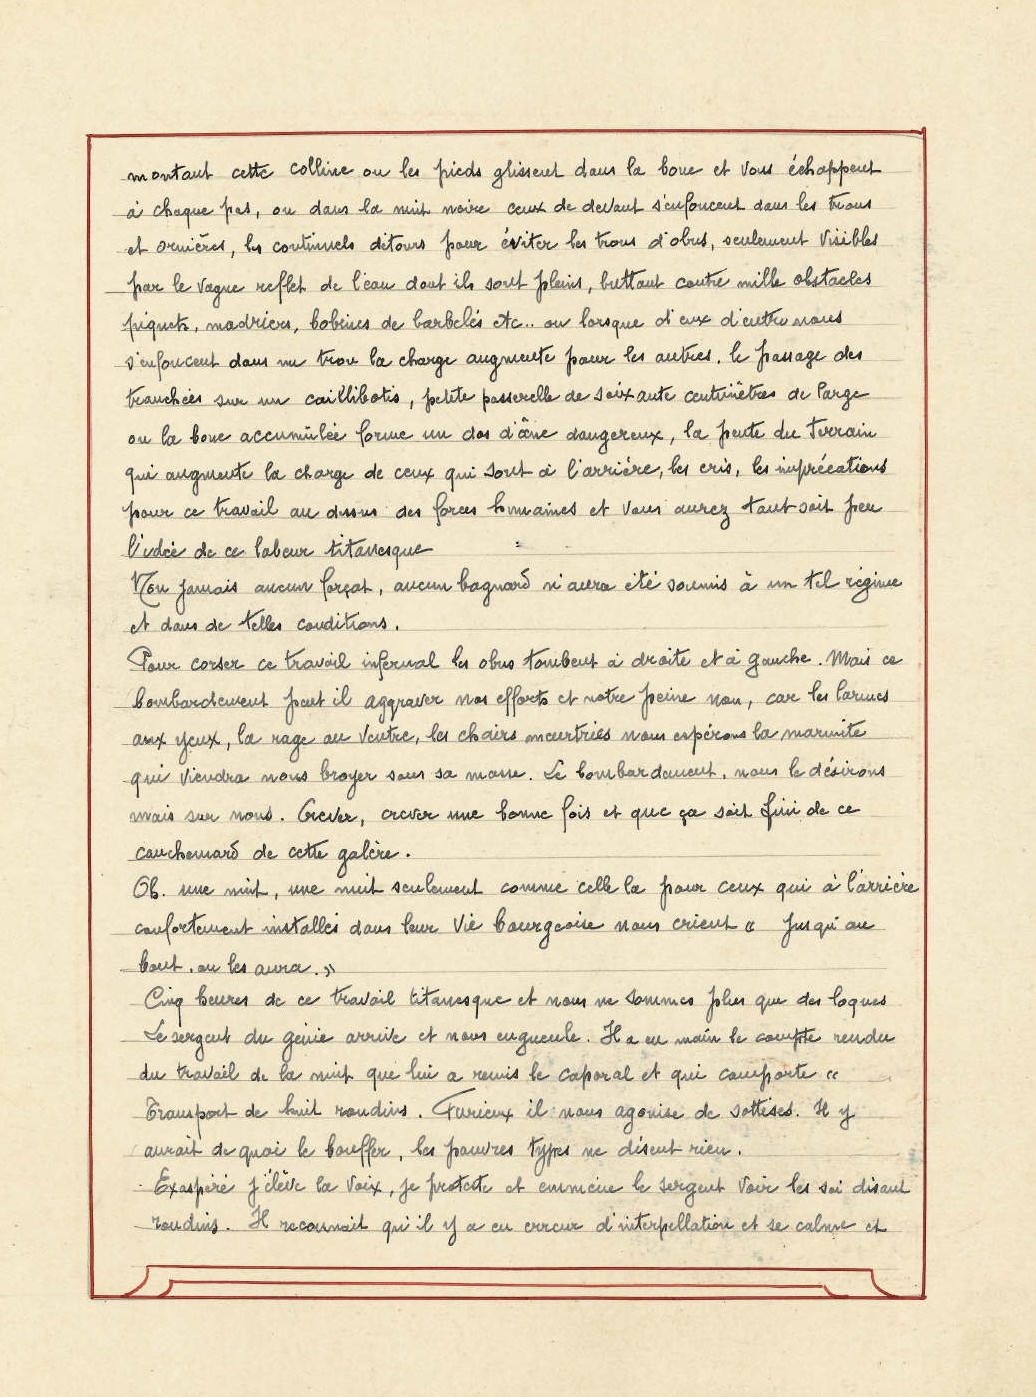 montant cette colline ou les pieds glissent dans la boue et vous échappent
à chaque pas, ou dans la nuit noire ceux de devant s'enfoncent dans les trous
et ornières, les continuels détours pour éviter les trous d'obus, seulement visibles
par le vague reflet de l'eau dont ils sont pleins, buttant contre mille obstacles
piquets, madriers, bobines de barbelés etc.. ou lorsque d'eux d'entre nous
s'enfoncent dans un trou la charge augmente pour les autres. le passage des
tranchées sur un caillibotis, petite passerelle de soixante centimètres de large
ou la boue accumulée forme un dos d'âne dangereux, la pente du terrain
qui augmente la charge de ceux qui sont à l'arrière, les cris, les imprécations
pour ce travail au dessus des forces humaines et vous aurez tant soit peu
l'idée de ce labeur titanesque
Non jamais aucun forçat, aucun bagnard n'aura été soumis à un tel régime
et dans de telles conditions.
Pour corser ce travail infernal les obus tombent à droite et à gauche. Mais ce
bombardement peut il aggraver nos efforts et notre peine non, car les larmes
aux yeux, la rage au ventre, les chairs meurtries nous espérons la marmite
qui viendra nous broyer sous sa masse. Le bombardement, nous le désirons
mais sur nous. Crever, crever une bonne fois et que ça soit fini de ce
cauchemard de cette galère.
Oh. une nuit, une nuit seulement comme celle la pour ceux qui à l'arrière
confortement installés dans leur vie bourgeoise nous crient « Jusqu'au
bout. on les aura. »
Cinq heures de ce travail titanesque et nous ne sommes plus que des loques
Le sergent du génie arrive et nous engueule. Il a en main le compte rendu
du travail de la nuit que lui a remis le caporal et qui comporte «
Transport de huit rondins. Furieux il nous agonise de sottises. Il y
aurait de quoi le bouffer, les pauvres types ne disent rien.
Exaspéré j'élève la voix, je proteste et emmène le sergent voir les soi disant
rondins. Il reconnait qu'il y a eu erreur d'interpellation et se calme et